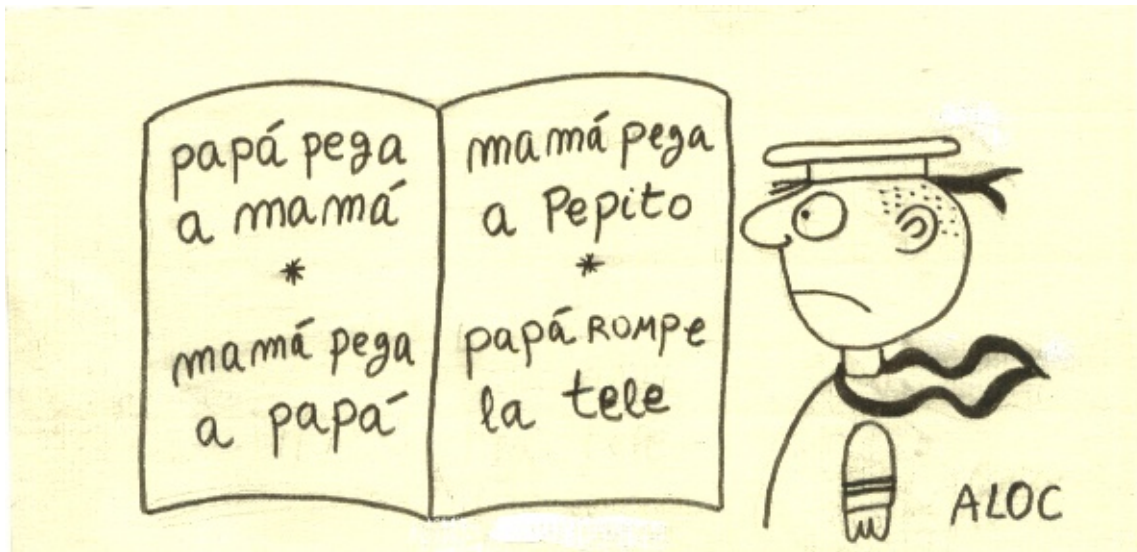 papá pega
a mamá
*
mamá pega
a papá
mamá pega
a Pepito
*
papá ROMPE
la tele
ALOC